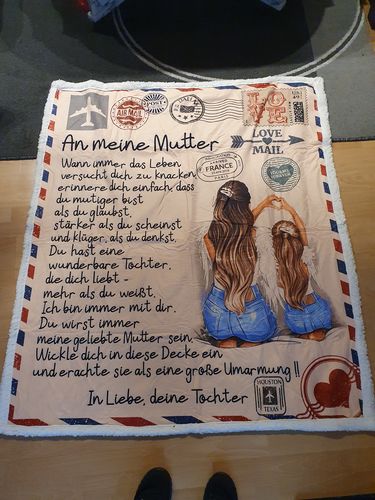 AIR MAIL
POST
LOVE
An meine Mutter
LOVE
MAIL
Wann immer das Leben
versucht dich zu knacken,
erinnere dich einfach, dass
du mutiger bist
als du glaubst,
stärker als du scheinst
und klüger, als du denkst,
Du hast eine
wunderbare Tochter,
die dich liebt -
mehr als du weißt,
Ich bin immer mit dir.
Du wirst immer
meine geliebte Mutter sein.
Wickle dich in diese Decke ein
und erachte sie als eine große Umarmung !!
In Liebe, deine Tochter
FRANCE
PARIS
HOUSTON
TEXAS